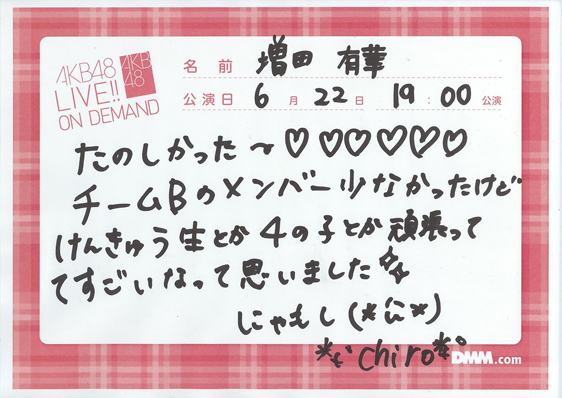 AKB48
LIVE!!
ON DEMAND
AKB
48
名前 増田 有華
公演日 6月22日 19:00公演
たのしかった〜♡♡♡♡♡♡
チームBのメンバー少なかったけど
けんきゅう生とか4の子とか頑張って
てすごいなって思いました
にゃもし(* *)
chiro
DMM.com